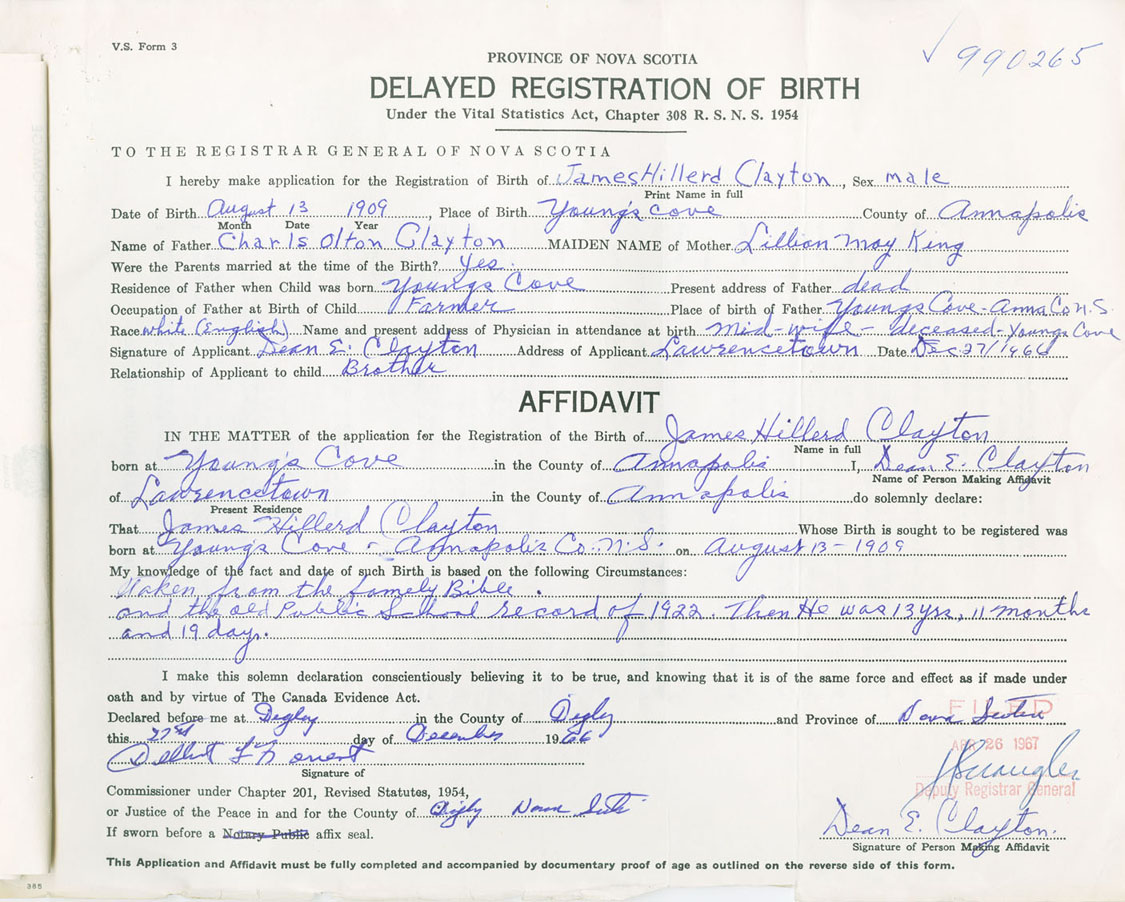 V.S. Form 3
✓ 990265
PROVINCE OF NOVA SCOTIA
DELAYED REGISTRATION OF BIRTH
Under the Vital Statistics Act, Chapter 308 R. S. N. S. 1954
TO THE REGISTRAR GENERAL OF NOVA SCOTIA
I hereby make application for the Registration of Birth of James Hillerd Clayton, Sex male
Print Name in full
Date of Birth August 13 1909, Place of Birth Young's cove County of Annapolis
Month Date Year
Name of Father Charls Olton Clayton MAIDEN NAME of Mother Lillian May King
Were the Parents married at the time of the Birth? Yes.
Residence of Father when Child was born Youngs Cove Present address of Father dead
Occupation of Father at Birth of Child Farmer Place of birth of Father Youngs Cove - Anna Co N.S.
Race white (English) Name and present address of Physician in attendance at birth mid-wife - deceased - Youngs Cove
Signature of Applicant Dean E. Clayton Address of Applicant Lawrencetown Date Dec 27/1966
Relationship of Applicant to child Brother
AFFIDAVIT
IN THE MATTER of the application for the Registration of the Birth of James Hillerd Clayton
Name in full
born at Young's Cove in the County of Annapolis I, Dean E. Clayton
Name of Person Making Affidavit
of Lawrencetown in the County of Annapolis do solemnly declare:
Present Residence
That James Hillerd Clayton Whose Birth is sought to be registered was
born at Young's Cove - Annapolis Co. N.S. on August 13 - 1909
My knowledge of the fact and date of such Birth is based on the following Circumstances:
Taken from the famely Bible.
and the old Public School record of 1922. Then He was 13 yrs, 11 months
and 19 days.
I make this solemn declaration conscientiously believing it to be true, and knowing that it is of the same force and effect as if made under
oath and by virtue of The Canada Evidence Act.
Declared before me at Digby in the County of Digby and Province of Nova Scotia
FILED
this 27th day of December 1966
APR 26 1967
Signature of
Deputy Registrar General
Commissioner under Chapter 201, Revised Statutes, 1954,
or Justice of the Peace in and for the County of Digby Nova Scotia
Dean E. Clayton.
If sworn before a Notary Public affix seal.
Signature of Person Making Affidavit
This Application and Affidavit must be fully completed and accompanied by documentary proof of age as outlined on the reverse side of this form.
385